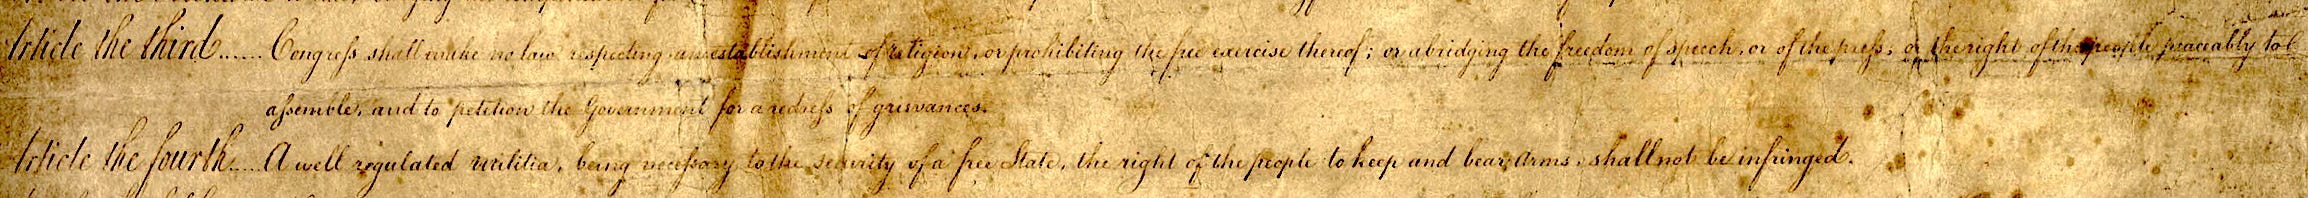 Article the third...... Congreſs shall make no law respecting an establishment of religion, or prohibiting the free exercise thereof; or abridging the freedom of speech, or of the preſs; or the right of the people peaceably to
aſsemble, and to petition the Government for a redreſs of grievances.
Article the fourth..... A well regulated militia, being neceſsary to the security of a free State, the right of the people to keep and bear Arms, shall not be infringed.